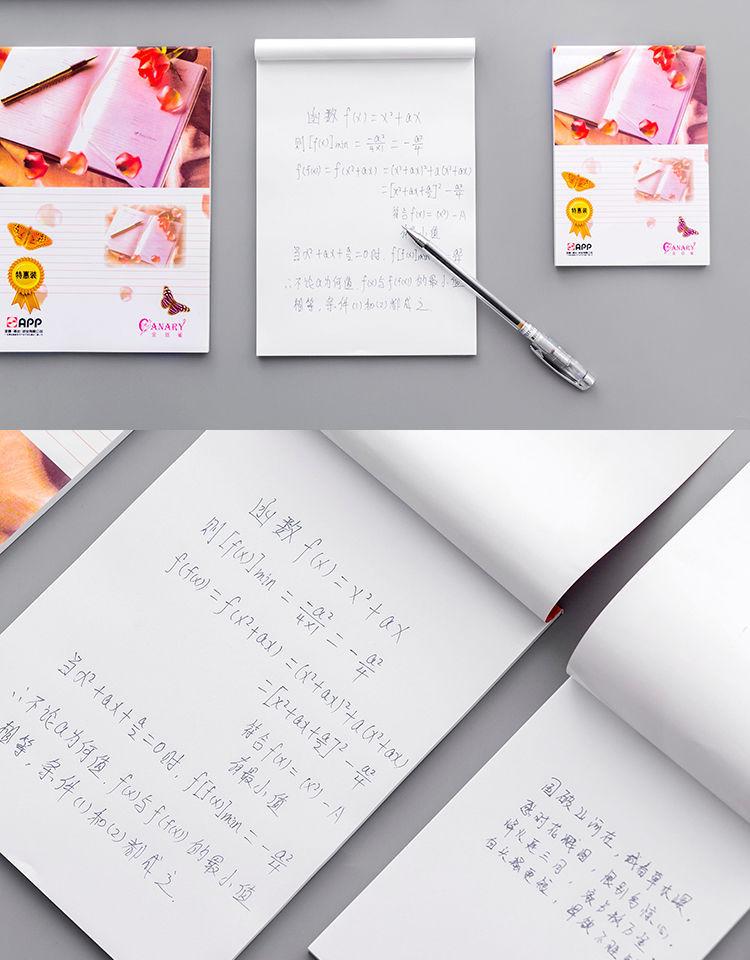 函数 f(x)=x²+ax
则[f(x)]min = -a²/4×1 = -a²/4
f(f(x)) = f(x²+ax) = (x²+ax)²+a(x²+ax)
=[x²+ax+a/2]²-a²/4
符合f(x)=(x²)-A
小值
当x²+ax+a/2=0时, f[f(x)]min = -a²/4
∴不论a为何值, f(x)与f(f(x))的最小值
相等, 条件(1)和(2)都成立
特惠装
APP
CANARY
金丝雀
特惠装
APP
CANARY
金丝雀
函数 f(x)=x²+ax
则[f(x)]min = -a²/4×1 = -a²/4
f(f(x)) = f(x²+ax) = (x²+ax)²+a(x²+ax)
=[x²+ax+a/2]²-a²/4
符合f(x)=(x²)-A
有最小值
当x²+ax+a/2=0时, f[f(x)]min = -a²/4
∴不论a为何值, f(x)与f(f(x))的最小值
相等, 条件(1)和(2)都成立
国破山河在, 城春草木深,
感时花溅泪, 恨别鸟惊心,
烽火连三月, 家书抵万金
白头搔更短, 浑欲不胜